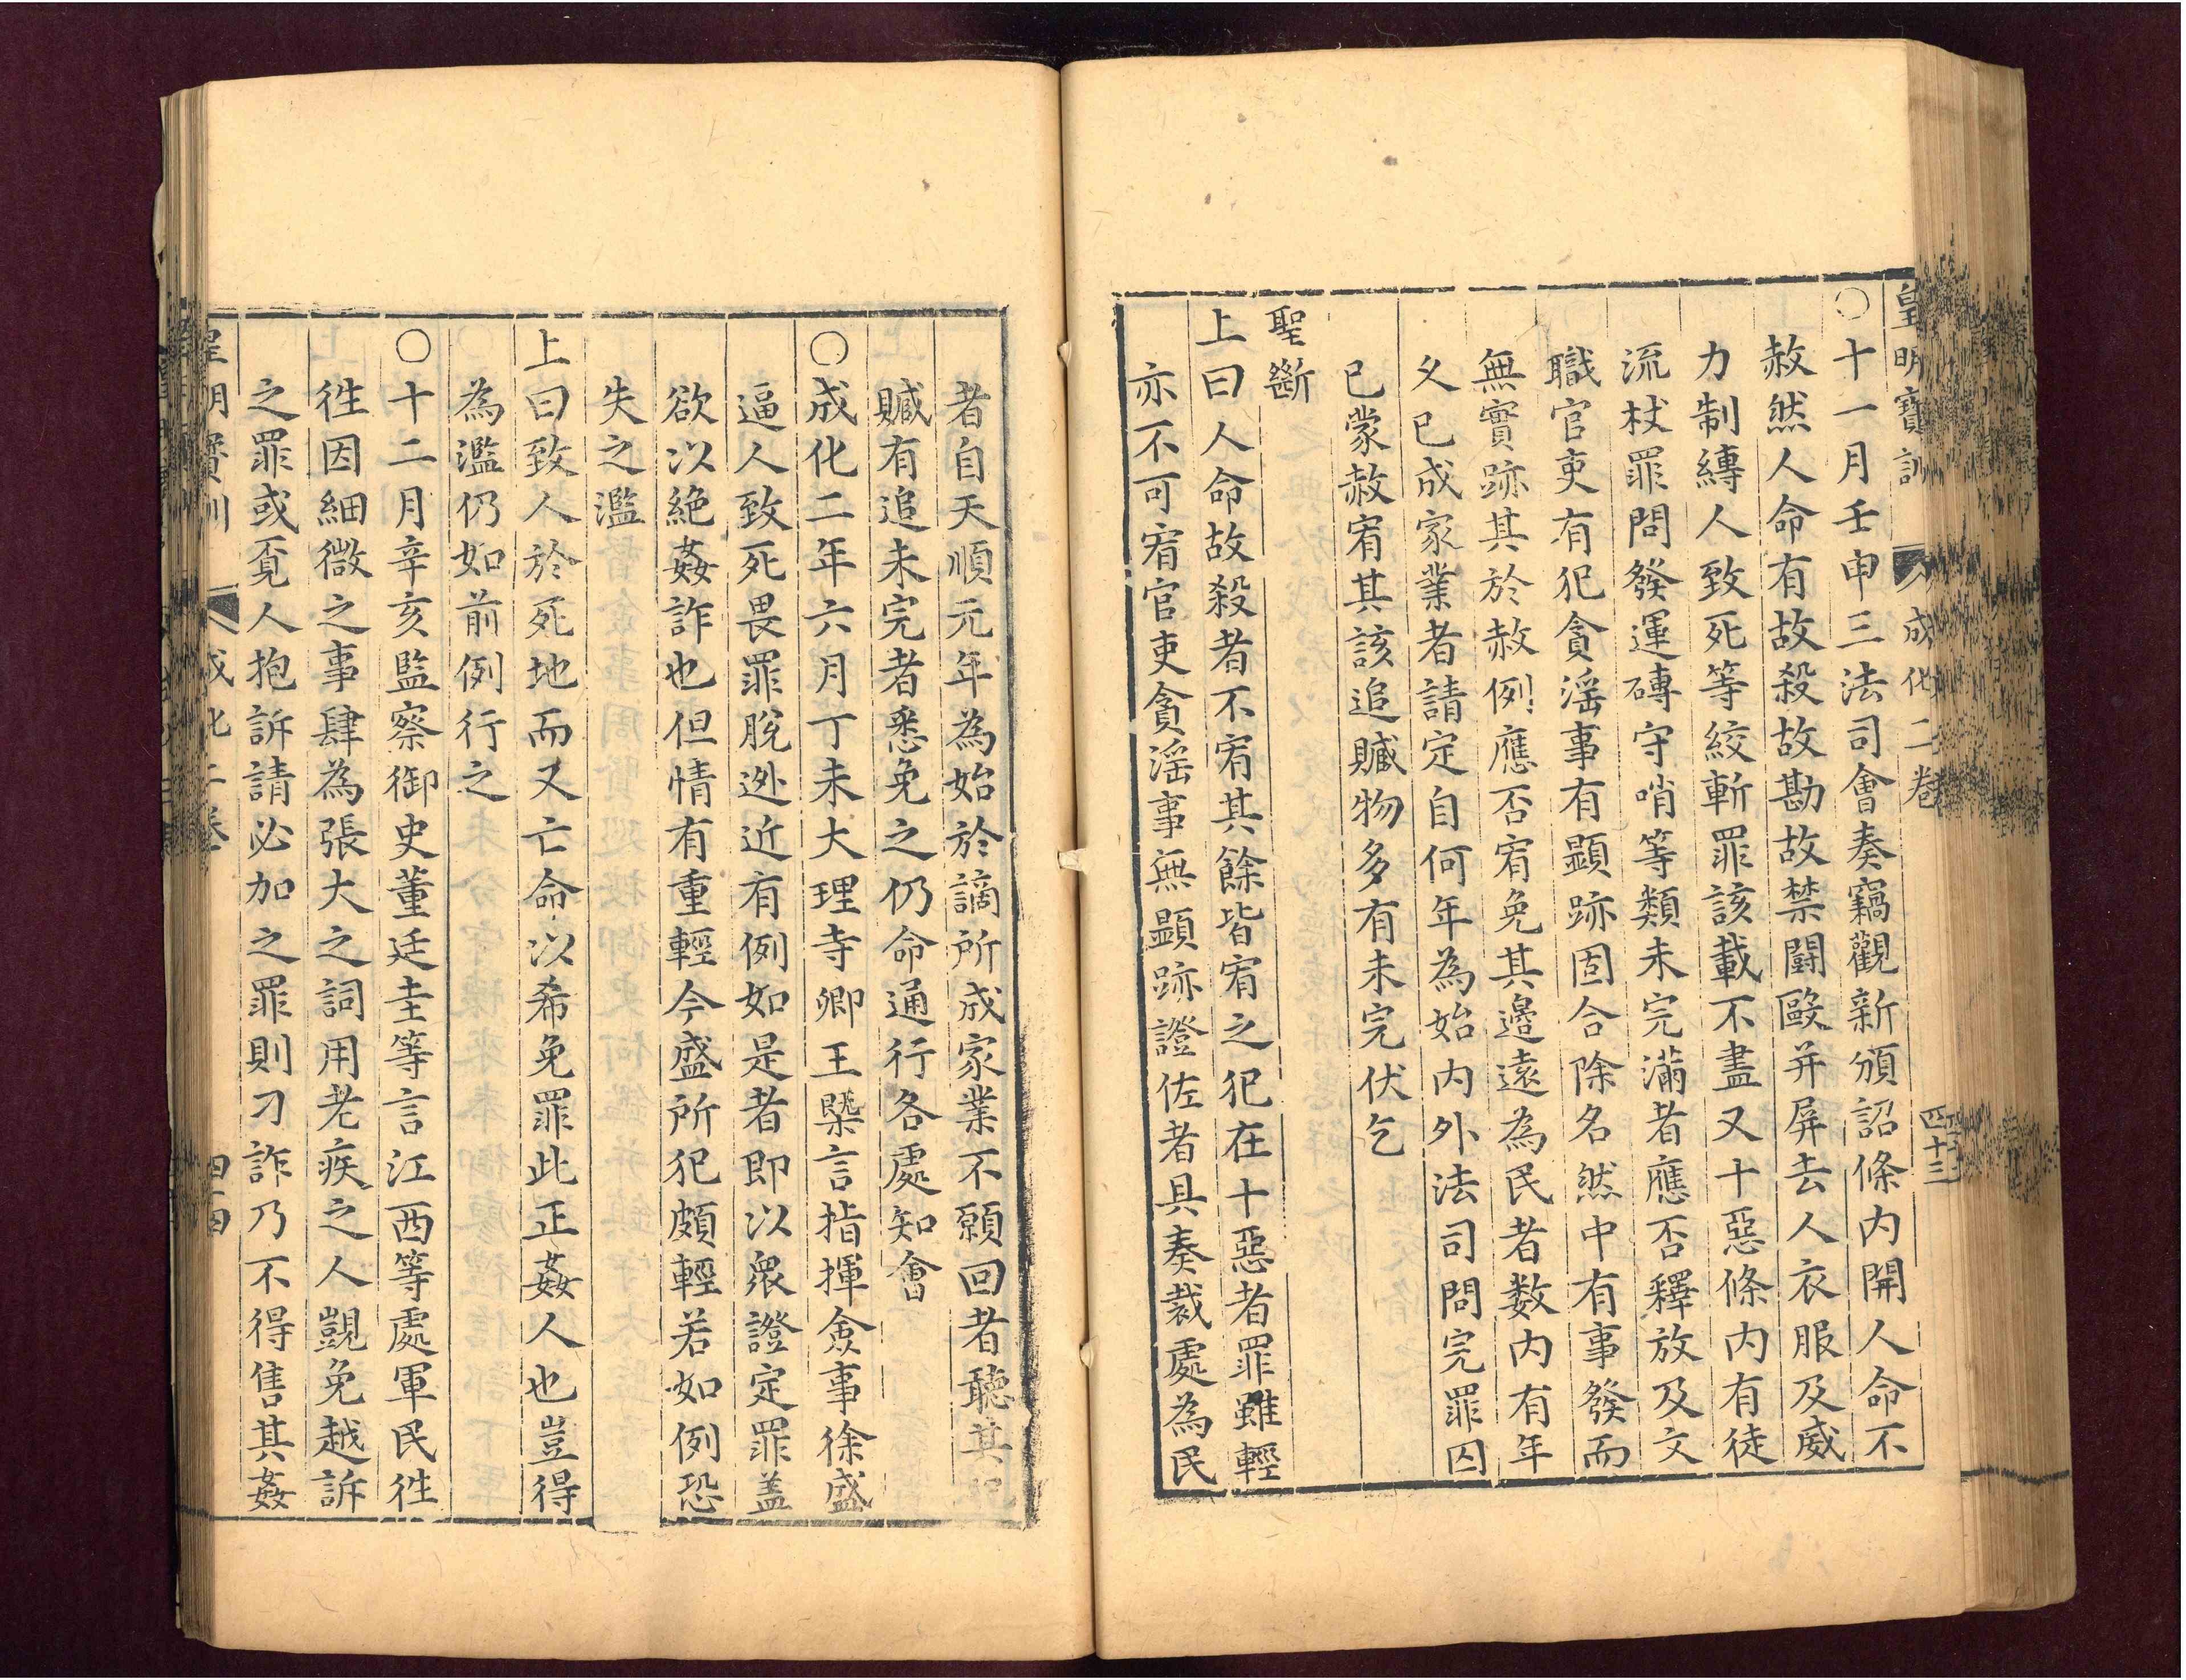 皇明寶訓 成化二卷 四十三
○十一月壬申三法司會奏竊觀新頒詔條内開人命不
赦然人命有故殺故勘故禁鬪毆并屏去人衣服及威
力制縳人致死等絞斬罪該載不盡又十惡條内有徒
流杖罪問發運磚守哨等類未完滿者應否釋放及文
職官吏有犯貪滛事有顯跡固合除名然中有事發而
無實跡其於赦例應否宥免其邊遠為民者数内有年
夊已成家業者請定自何年為始内外法司問完罪囚
已蒙赦宥其該追贓物多有未完伏乞
聖斷
上曰人命故殺者不宥其餘皆宥之犯在十惡者罪雖輕
亦不可宥官吏貪滛事無顯跡證佐者具奏裁處為民
者自天順元年為始於謫所成家業不願回者聽其
贓有追未完者悉免之仍命通行各處知會
○成化二年六月丁未大理寺卿王槩言指揮僉事徐盛
逼人致死畏罪脫逃近有例如是者即以衆證定罪盖
欲以絶姦詐也但情有重輕今盛所犯頗輕若如例恐
失之濫
上曰致人於死地而又亡命以希免罪此正姦人也豈得
為濫仍如前例行之
○十二月辛亥監察御史董廷圭等言江西等處軍民徃
徃因細微之事肆為張大之詞用老疾之人覬免越訴
之罪或覔人抱訴請必加之罪則刁詐乃不得售其姦
皇明寶訓 成化二卷 四十四